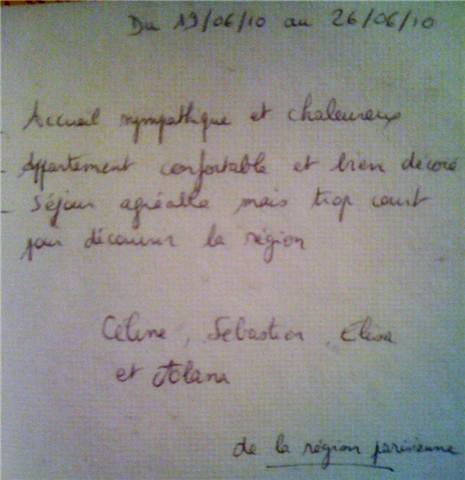 Du 19/06/10 au 26/06/10
- Accueil sympathique et chaleureux
- Appartement confortable et bien décoré
- Séjour agréable mais trop court
pour découvrir la région
Céline, Sébastien, Elisa
et
de la région parisienne